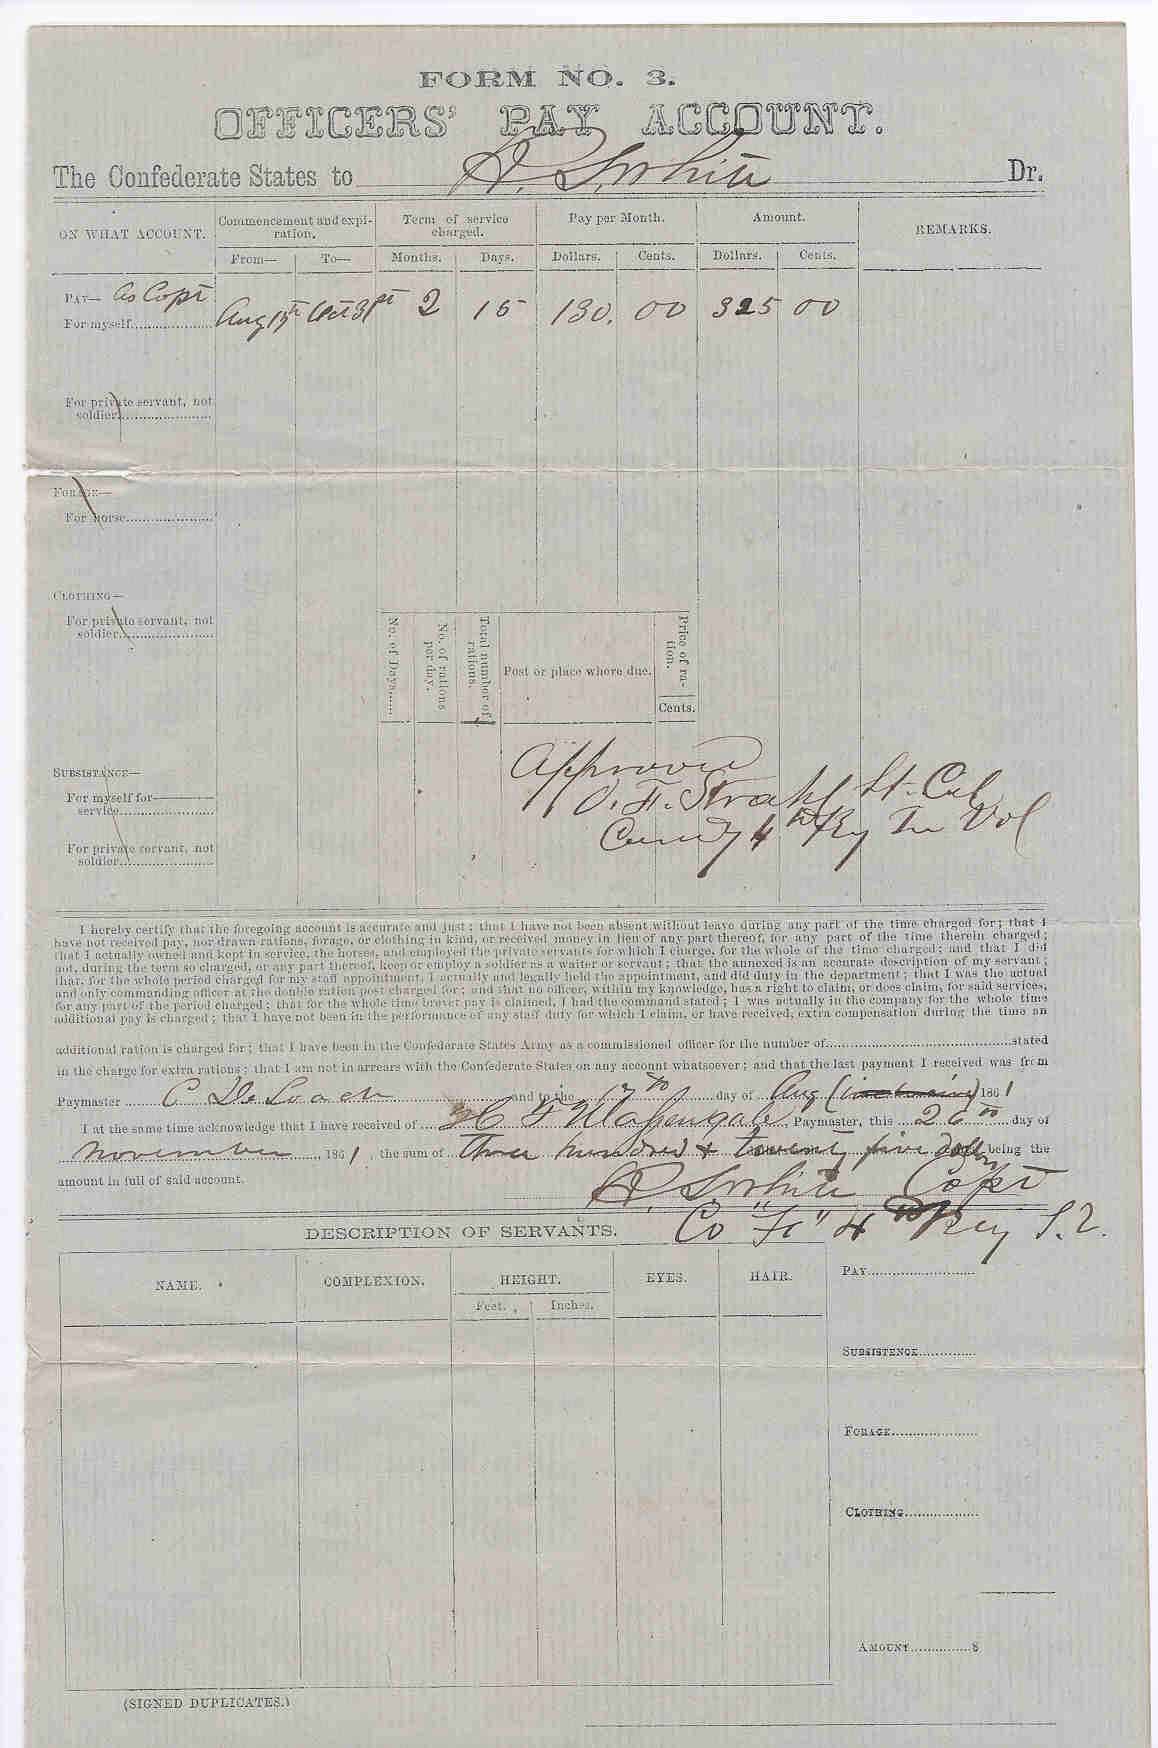 FORM NO. 3.
OFFICERS' PAY ACCOUNT.
The Confederate States to White Dr.
ON WHAT ACCOUNT.
Commencement and expiration.
Term of service charged.
Pay per Month.
Amount.
REMARKS.
From—
To—
Months.
Days.
Dollars.
Cents.
Dollars.
Cents.
PAY— As Capt
For myself
Aug 15th Oct 31st 2 15 130. 00 325 00
For private servant, not
soldier
FORAGE—
For horse
CLOTHING—
For private servant, not
soldier
No. of Days
No. of rations per day.
Total number of rations.
Post or place where due.
Price of ration.
Cents.
SUBSISTANCE—
For myself for
service
For private servant, not
soldier
Approved
O. F. Strahl Lt. Col
4th Reg Tn Vol
I hereby certify that the foregoing account is accurate and just; that I have not been absent without leave during any part of the time charged for; that I
have not received pay, nor drawn rations, forage, or clothing in kind, or received money in lieu of any part thereof, for any part of the time therein charged;
that I actually owned and kept in service, the horses, and employed the private servants for which I charge, for the whole of the time charged; and that I did
not, during the term so charged, or any part thereof, keep or employ a soldier as a waiter or servant; that the annexed is an accurate description of my servant;
that, for the whole period charged for my staff appointment, I actually and legally held the appointment, and did duty in the department; that I was the actual
and only commanding officer at the double ration post charged for; and that no officer, within my knowledge, has a right to claim, or does claim, for said services,
for any part of the period charged; that for the whole time brevet pay is claimed, I had the command stated; I was actually in the company for the whole time
additional pay is charged; that I have not been in the performance of any staff duty for which I claim, or have received, extra compensation during the time an
additional ration is charged for; that I have been in the Confederate States Army as a commissioned officer for the number of stated
in the charge for extra rations; that I am not in arrears with the Confederate States on any account whatsoever; and that the last payment I received was from
Paymaster C De Loach and to the day of Aug 1861
I at the same time acknowledge that I have received of H F Massengale, Paymaster, this 26th day of
November, 1861, the sum of Three hundred & twenty five dollars being the
amount in full of said account.
White Capt
Co 4th Reg
DESCRIPTION OF SERVANTS.
NAME.
COMPLEXION.
HEIGHT.
EYES.
HAIR.
Feet.
Inches.
PAY
SUBSISTENCE
FORAGE
CLOTHING
AMOUNT $
(SIGNED DUPLICATES.)